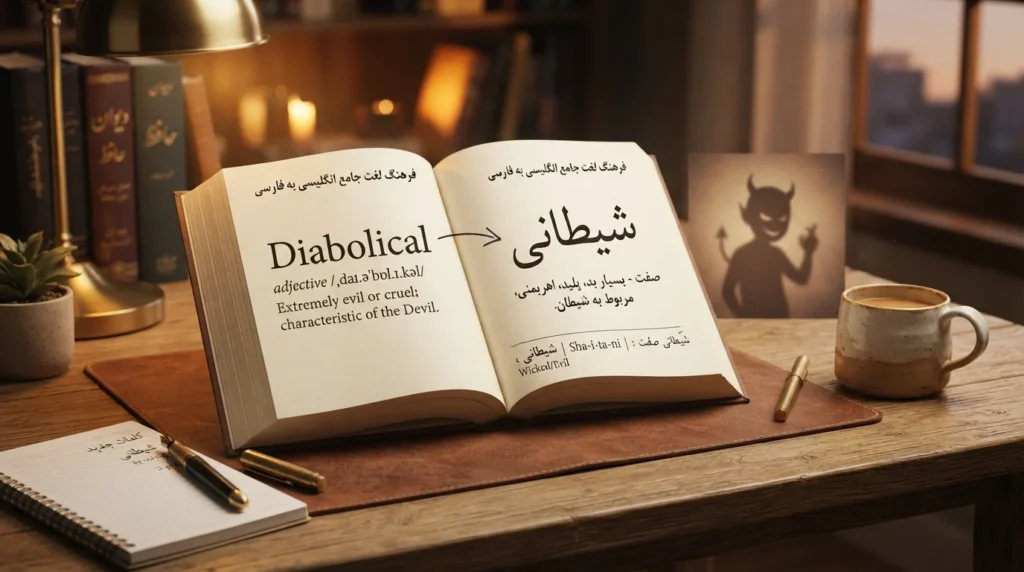 دیوان
حافظ
حافظ
فرهنگ لغت جامع انگلیسی به فارسی
Diabolical
adjective /ˌdaɪ.əˈbɒl.ɪ.kəl/
Extremely evil or cruel;
characteristic of the Devil.
فرهنگ لغت جامع انگلیسی به فارسی
شیطانی
صفت - بسیار بد، پلید، اهریمنی،
مربوط به شیطان.
شیطانی صفت : | Sha-i-ta-ni | شیطانی ؛
کلمات جدید
شیطانی